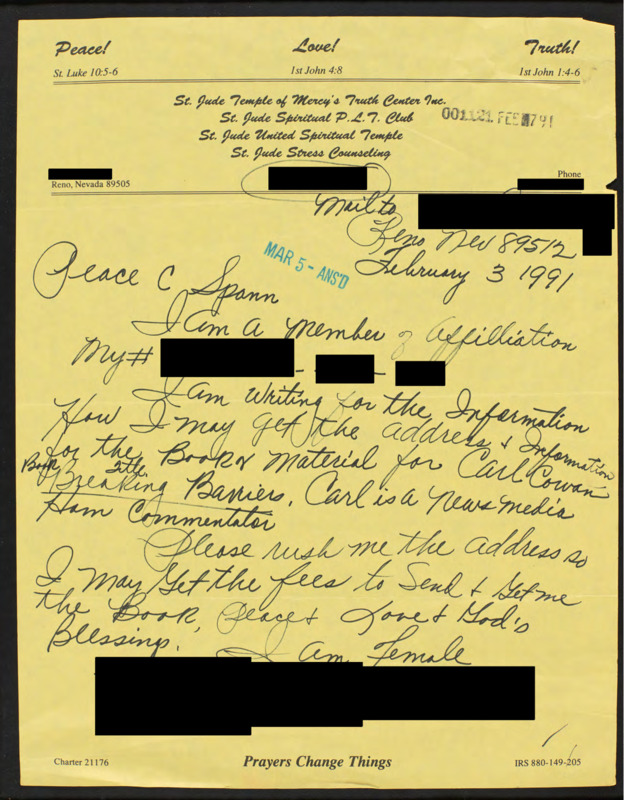 Peace!
Love!
Truth!
St. Luke 10:5-6
1st John 4:8
1st John 1:4-6
St. Jude Temple of Mercy's Truth Center Inc.
St. Jude Spiritual P.L.T. Club
St. Jude United Spiritual Temple
St. Jude Stress Counseling
001121 FEB 791
Phone
Reno, Nevada 89505
Mail to
Reno Nev 89512
February 3 1991
MAR 5 - ANS'D
Peace C Spann
I am a member of affilliation
My #
I am writing for the Information
How I may get the address & Information
for the Book or material for Carl Cowan
Book Title
Breaking Barriers, Carl is a news media
Ham Commentator
Please rush me the address so
I may get the fees to send & get me
the Book, Peace & Love & God's
Blessings.
I am Female
Charter 21176
Prayers Change Things
IRS 880-149-205